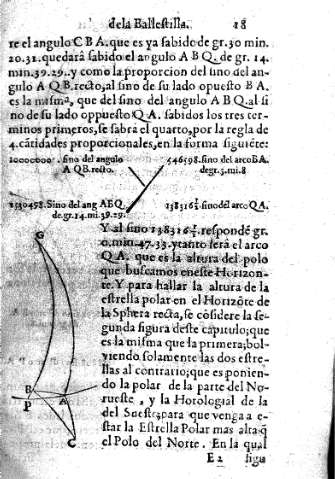 dela Ballestilla. 18
re el angulo C B A. que es ya sabido de gr. 30 min.
20.31. quedará sabido el angulo A B Q. de gr. 14.
min. 39.29. y como la proporcion del sino del an-
gulo A Q B. recto, al sino de su lado opuesto B A.
es la misma, que del sino del angulo A B Q. al si
no de su lado oppuesto Q A. sabidos los tres ter-
minos primeros, se sabra el quarto, por la regla de
4. cãtidades proporcionales, en la forma siguiẽte:
10000000. sino del angulo
A Q B. recto.
546598. sino del arco B A.
de gr. 3. mi. 8
Sino del ang A B Q.
de. gr. 14. mi. 39. 29.
sino del arco Q A.
Y al sino respondẽ gr.
0. min. 47. 33. y tanto será el arco
Q A. que es la altura del polo
que buscamos en este Horizon-
te. Y para hallar la altura de la
estrella polar en el Horizõte de
la Sphera recta, se cõsidere la se-
gunda figura deste capitulo; que
es la misma que la primera; bol-
viendo solamente las dos estre-
llas al contrario; que es ponien-
do la polar de la parte del No-
rueste, y la Horologial de la
del Sueste; para que venga a e-
star la Estrella Polar mas alta q̃
el Polo del Norte. En la qual
E 2 figu
G
B
P
A
C